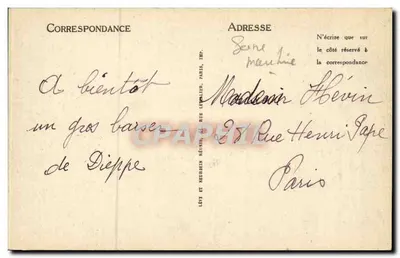 CORRESPONDANCE
A bientôt
un gros baiser
de Dieppe
LÉVY ET NEURDEIN RÉUNIS, RUE LETELLIER, PARIS, IMP.
ADRESSE
N'écrire que sur
le côté réservé à
la correspondance
Seine
maritime
Hévin
28 Rue Henri Pape
Paris
CPAPHIL